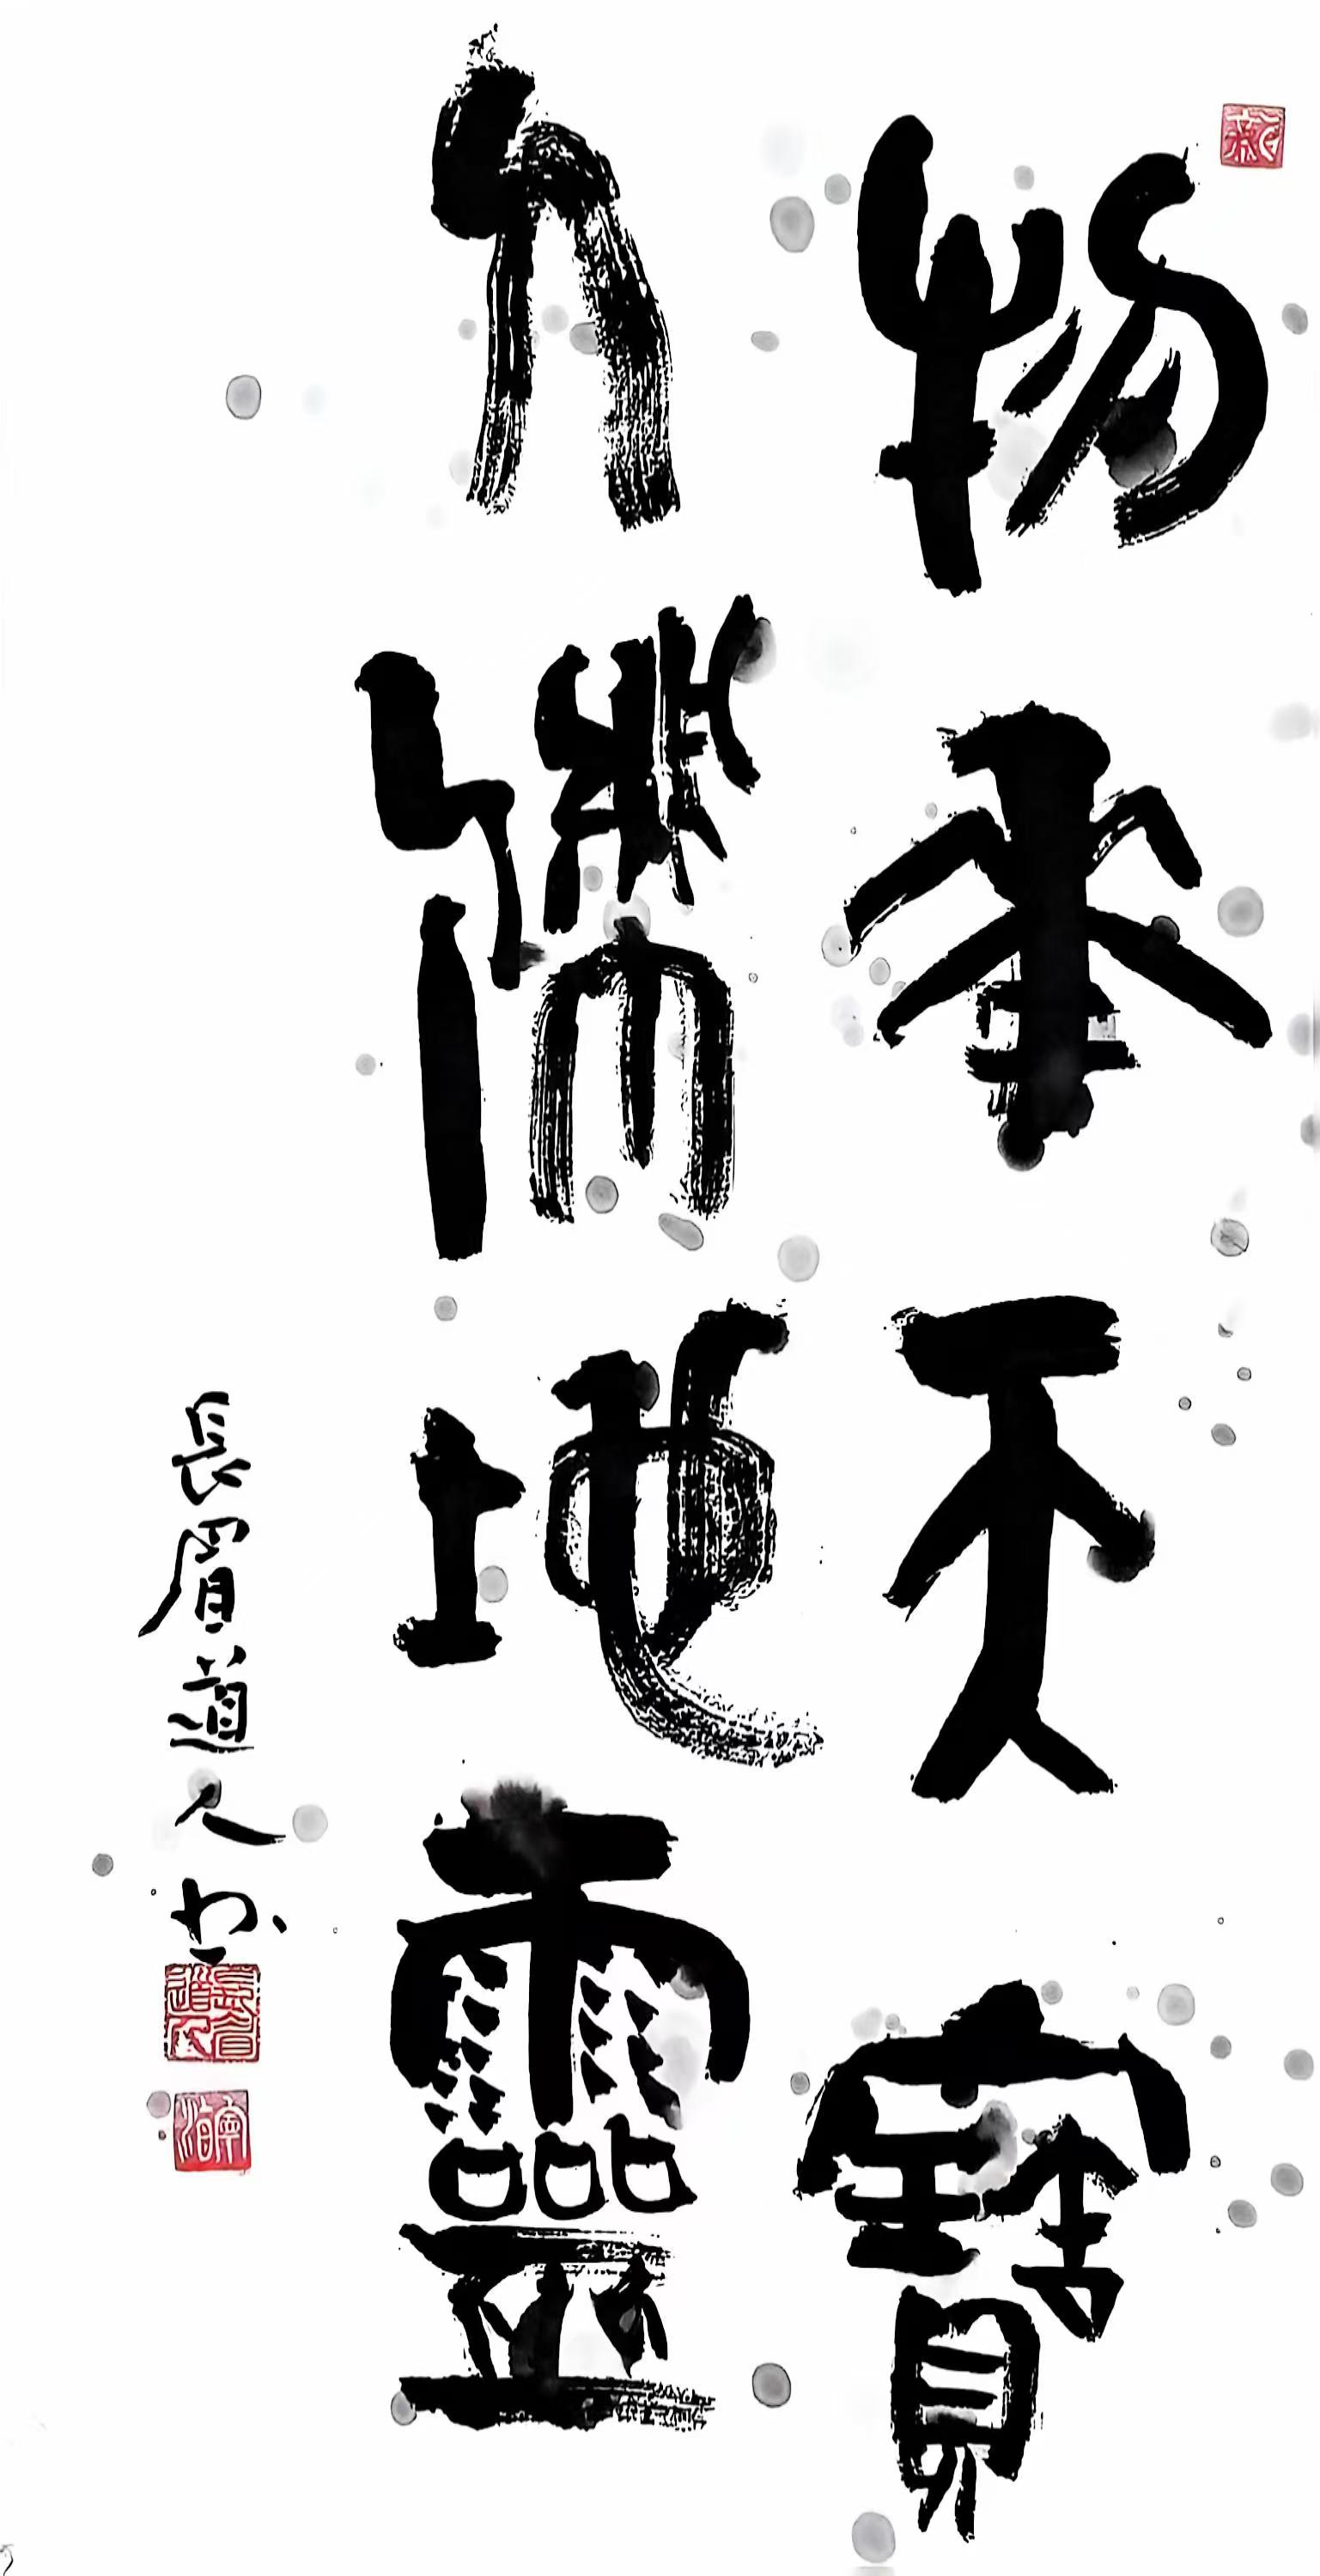 物華天寶
人傑地靈
長眉道人书